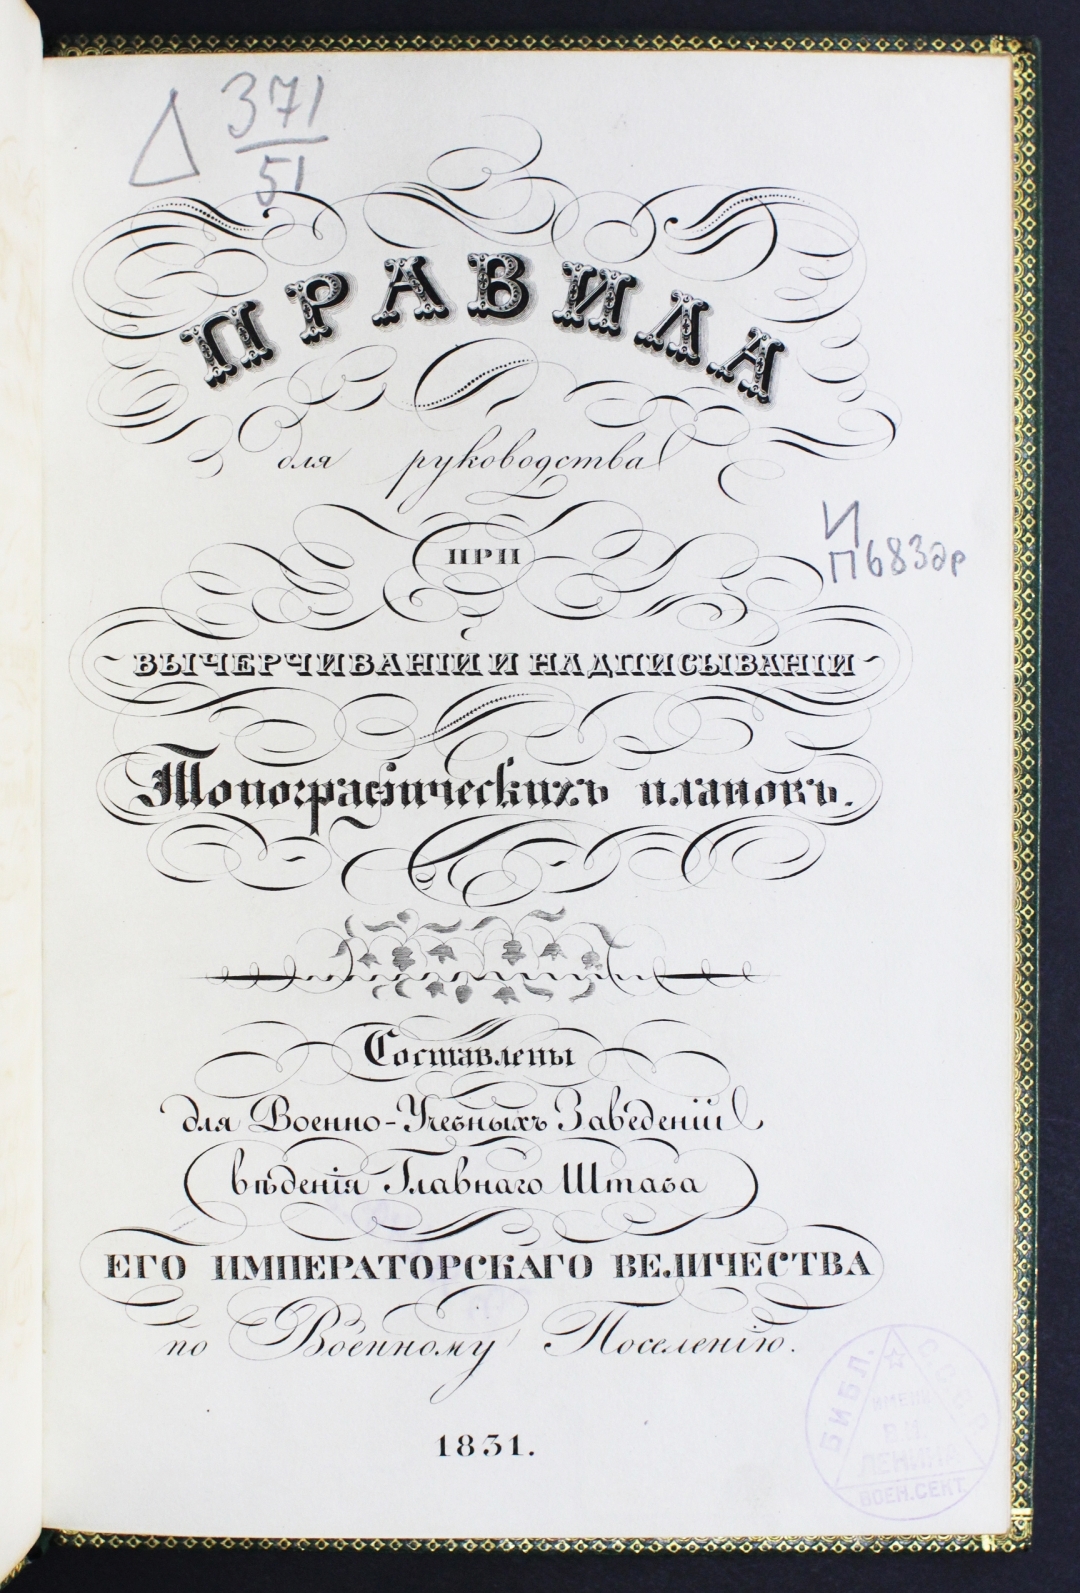 371
51
ПРАВИЛА
для руководства
И
П683др
ПРИ
ВЫЧЕРЧИВАНІИ И НАДПИСЫВАНІИ
Топографическихъ плановъ.
Составлены
для Военно-Учебныхъ Заведеній
вѣденія Главнаго Штаба
ЕГО ИМПЕРАТОРСКАГО ВЕЛИЧЕСТВА
по Военному Поселенію.
БИБЛ.
СССР
ИМЕНИ
В.И.
ЛЕНИНА
ВОЕН.СЕКТ.
1831.